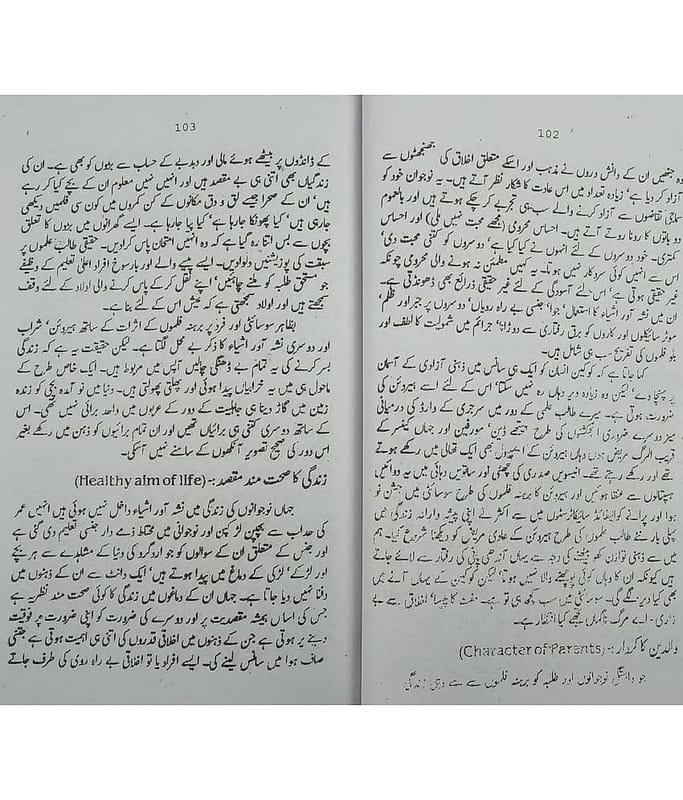 102
وہ جنھیں ان کے دانش وروں نے مذہب اور اسکے متعلق اخلاق کی جھنجھٹوں سے
آزاد کر دیا ہے، زیادہ تعداد میں اس عادت کا شکار نظر آتے ہیں۔ یہ نوجوان خود کو
سماجی تقاضوں سے آزاد کرنے والے سب ہی تجربے کر چکے ہوتے ہیں اور بالعموم
دو باتوں کا رونا روتے آتے ہیں۔ احساس محرومی (مجھے محبت نہیں ملی) اور احساس
کمتری۔ خود دوسروں کے لئے انہوں نے کیا کیا ہے، دوسروں کو کتنی محبت دی،
اس سے انہیں کوئی سروکار نہیں ہوتا۔ یہ کہیں مطمئن نہ ہونے والی محرومی چونکہ
غیر حقیقی ہوتی ہے، اس لئے آسودگی کے لئے غیر حقیقی ذرائع بھی ڈھونڈتی ہے۔
ان میں نشہ آور اشیاء کا استعمال، جوا، جنسی بے راہ رویاں، دوسروں پر جبر اور ظلم،
موٹر سائیکلوں اور کاروں کو برق رفتاری سے دوڑانا، جرائم میں شمولیت کا لطف اور
بلو فلموں کی تفریح سب ہی شامل ہیں۔
کہا جاتا ہے کہ کوکین انسان کو ایک ہی سانس میں ذہنی آزادی کے آسمان
پر پہنچا دے، لیکن وہ زیادہ دیر وہاں رہ نہیں سکتا، اس کے لئے اسے ہیروئن کی
ضرورت ہوتی ہے۔ میرے طالب علمی کے دور میں سرجری کے وارڈ کی درمیانی
میز دوسرے ضروری انجکشنوں کی طرح پیتھے ڈین، مورفین اور جہاں کینسر کے
قریب المرگ مریض ہوں وہاں ہیروئن کے ایمپیول بھی ایک تھالی میں رکھے ہوتے
تھے اور رکھے رہتے تھے۔ انیسویں صدری کی چھٹی اور ساتویں دہائی میں یہ دوائیں
ہسپتالوں سے عنقا ہوئیں اور ہیروئن کا برہنہ فلموں کی طرح سوسائٹی میں جشن نو
ہوا اور پرانے کوالیفائڈ سائیکاٹرسٹوں میں سے اکثر نے اپنی پیشہ ورانہ زندگی میں
پہلی بار نئے طالب علموں کی طرح ہیروئن کے عادی مریض کو دیکھنا شروع کیا۔ ہم
میں سے ذہنی توازن کھو بیٹھنے کی وجہ سے یہاں آندھی پانی کی رفتار سے لائے جاتے
ہیں کیونکہ ان کا وہاں کوئی پوچھنے والا نہیں ہوتا، لیکن کوکین کے یہاں آنے میں
بھی کیا دیر لگے گی۔ سوسائٹی میں سب کچھ ہی تو ہے۔ مفت کا پیسا، اخلاق سے بے
زاری - اے مرگ ناگہاں تجھے کیا انتظار ہے۔
والدین کا کردار :- (Character of Parents)
جو والدین نوجوانوں اور طلبہ کو برہنہ فلموں سے بے دہی زندگی
103
کے ڈانڈوں پر بیٹھے ہوئے مالی اور دبدبے کے حساب سے بڑوں کو بھی ہے۔ ان کی
زندگیاں بھی اتنی ہی بے مقصد ہیں اور انہیں نہیں معلوم ان کے بچے کیا کر رہے
ہیں، ان کے صحرا جیسے لق و دق مکانوں کے کن کمروں میں کون سی فلمیں دیکھی
جا رہی ہیں، کیا پھونکا جا رہا ہے، کیا پیا جا رہا ہے۔ ایسے گھرانوں میں بڑوں کا تعلق
بچوں سے بس اتنا رہ گیا ہے کہ وہ انہیں امتحان پاس کرا دیں۔ حقیقی طالب علموں پر
سبقت کی پوزیشنیں دلوا دیں۔ ایسے پیسے والے اور بارسوخ افراد اعلیٰ تعلیم کے وظیفے
جو مستحق طلبہ کو ملنے چاہئیں، اپنے نقل کر کے پاس کرنے والی اولاد کے لئے وقف
سمجھتے ہیں اور اولاد سمجھتی ہے کہ عیش اس کے لئے بنا ہے۔
بظاہر سوسائٹی اور فرد پر برہنہ فلموں کے اثرات کے ساتھ ہیروئن، شراب
اور دوسری نشہ آور اشیاء کا ذکر بے محل لگتا ہے۔ لیکن حقیقت یہ ہے کہ زندگی
بسر کرنے کی یہ تمام بے ڈھنگی چالیں آپس میں مربوط ہیں۔ ایک خاص طرح کے
ماحول ہی میں یہ خرابیاں پیدا ہوئی اور پھلتی پھولتی ہیں۔ دنیا میں نو آمدہ بچی کو زندہ
زمین میں گاڑ دینا ہی جاہلیت کے دور کے عربوں میں واحد برائی نہیں تھی۔ اس
کے ساتھ دوسری کتنی ہی برائیاں تھیں اور ان تمام برائیوں کو ذہن میں رکھے بغیر
اس دور کی صحیح تصویر آنکھوں کے سامنے نہیں آسکتی۔
زندگی کا صحت مند مقصد :- (Healthy aim of life)
جہاں نوجوانوں کی زندگی میں نشہ آور اشیاء داخل نہیں ہوئی ہیں انہیں عمر
کی حداب سے بچپن لڑکپن اور نوجوانی میں محتاط ذمے دار جنسی تعلیم دی گئی ہے
اور جنس کے متعلق ان کے سوالوں کو جو اردگرد کی دنیا کے مشاہدے سے ہر بچے
اور لڑکے، لڑکی کے دماغ میں پیدا ہوتے ہیں، ایک ڈانٹ سے ان کے ذہنوں میں
دفنا نہیں دیا جاتا ہے۔ جہاں ان کے دماغوں میں زندگی کا کوئی صحت مند نظریہ ہے
جس کی اساس ہمیشہ مقصدیت پر اور دوسرے کی ضرورت کو اپنی ضرورت پر فوقیت
دینے پر ہوتی ہے جن کے ذہنوں میں اخلاقی قدروں کی اتنی ہی اہمیت ہوتی ہے جتنی
صاف ہوا میں سانس لینے کی۔ ایسے افراد یا تو اخلاقی بے راہ روی کی طرف جاتے